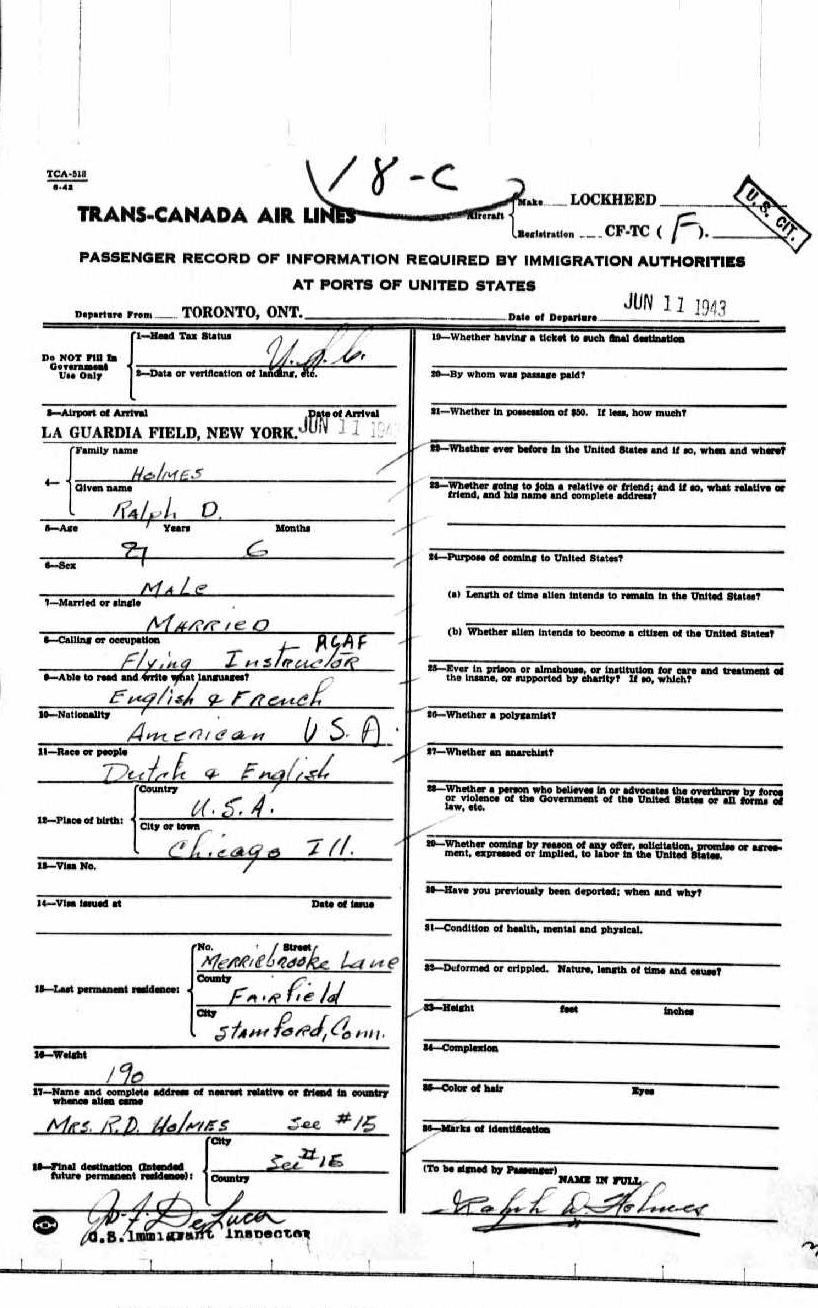 TCA-518
6-42
V8-C
TRANS-CANADA AIR LINES
Aircraft
Make LOCKHEED
Registration CF-TC ( F ).
U.S. CIT.
PASSENGER RECORD OF INFORMATION REQUIRED BY IMMIGRATION AUTHORITIES
AT PORTS OF UNITED STATES
Departure From TORONTO, ONT.
Date of Departure JUN 11 1943
Do NOT Fill In
Government
Use Only
1—Head Tax Status
2—Data or verification of landing, etc.
3—Airport of Arrival
Date of Arrival
LA GUARDIA FIELD, NEW YORK. JUN 11 194
4—
Family name
HOLMES
Given name
RAlph D.
5—Age Years Months
6
6—Sex
MALE
7—Married or single
MARRIED
8—Calling or occupation
Flying InstructoR
9—Able to read and write what languages?
English & FRench
10—Nationality
AmeRican U S.A.
11—Race or people
Dutch & English
12—Place of birth:
Country
U.S.A.
City or town
Chicago Ill.
13—Visa No.
14—Visa issued at Date of issue
15—Last permanent residence:
No. Street
MeRRiebRooke Lane
County
FAIRField
City
StamfoRD, Conn.
16—Weight
190
17—Name and complete address of nearest relative or friend in country
whence alien came
MRs. R.D. HOLMES See #15
18—Final destination (Intended
future permanent residence):
City
See #15
Country
De Luca
U.S.Immigrant Inspector
19—Whether having a ticket to such final destination
20—By whom was passage paid?
21—Whether in possession of $50. If less, how much?
22—Whether ever before in the United States and if so, when and where?
23—Whether going to join a relative or friend; and if so, what relative or
friend, and his name and complete address?
24—Purpose of coming to United States?
(a) Length of time alien intends to remain in the United States?
(b) Whether alien intends to become a citizen of the United States?
25—Ever in prison or almshouse, or institution for care and treatment of
the insane, or supported by charity? If so, which?
26—Whether a polygamist?
27—Whether an anarchist?
28—Whether a person who believes in or advocates the overthrow by force
or violence of the Government of the United States or all forms of
law, etc.
29—Whether coming by reason of any offer, solicitation, promise or agree-
ment, expressed or implied, to labor in the United States.
30—Have you previously been deported; when and why?
31—Condition of health, mental and physical.
32—Deformed or crippled. Nature, length of time and cause?
33—Height feet inches
34—Complexion
35—Color of hair Eyes
36—Marks of identification
(To be signed by Passenger)
NAME IN FULL
Ralph D. Holmes